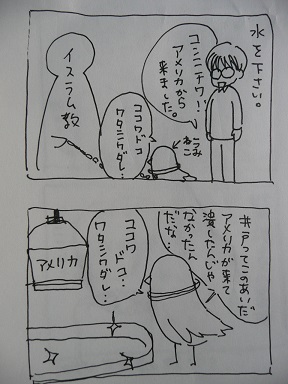 水を下さい。
コンニチワ!
アメリカから
来ました。
うみ
ねこ
ココワドコ
ワタシワダレ…
イスラム教
井戸ってこのあいだ
アメリカが来て
潰したんじゃ
なかったん
だな…
ココワ
ドコ…
ワタシワダレ…
アメリカ